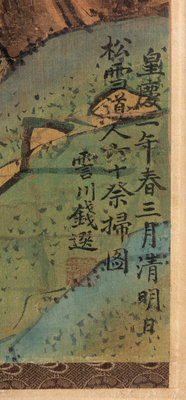 皇慶一年春三月清明日
松雪道人六十祭掃圖
雲川錢選